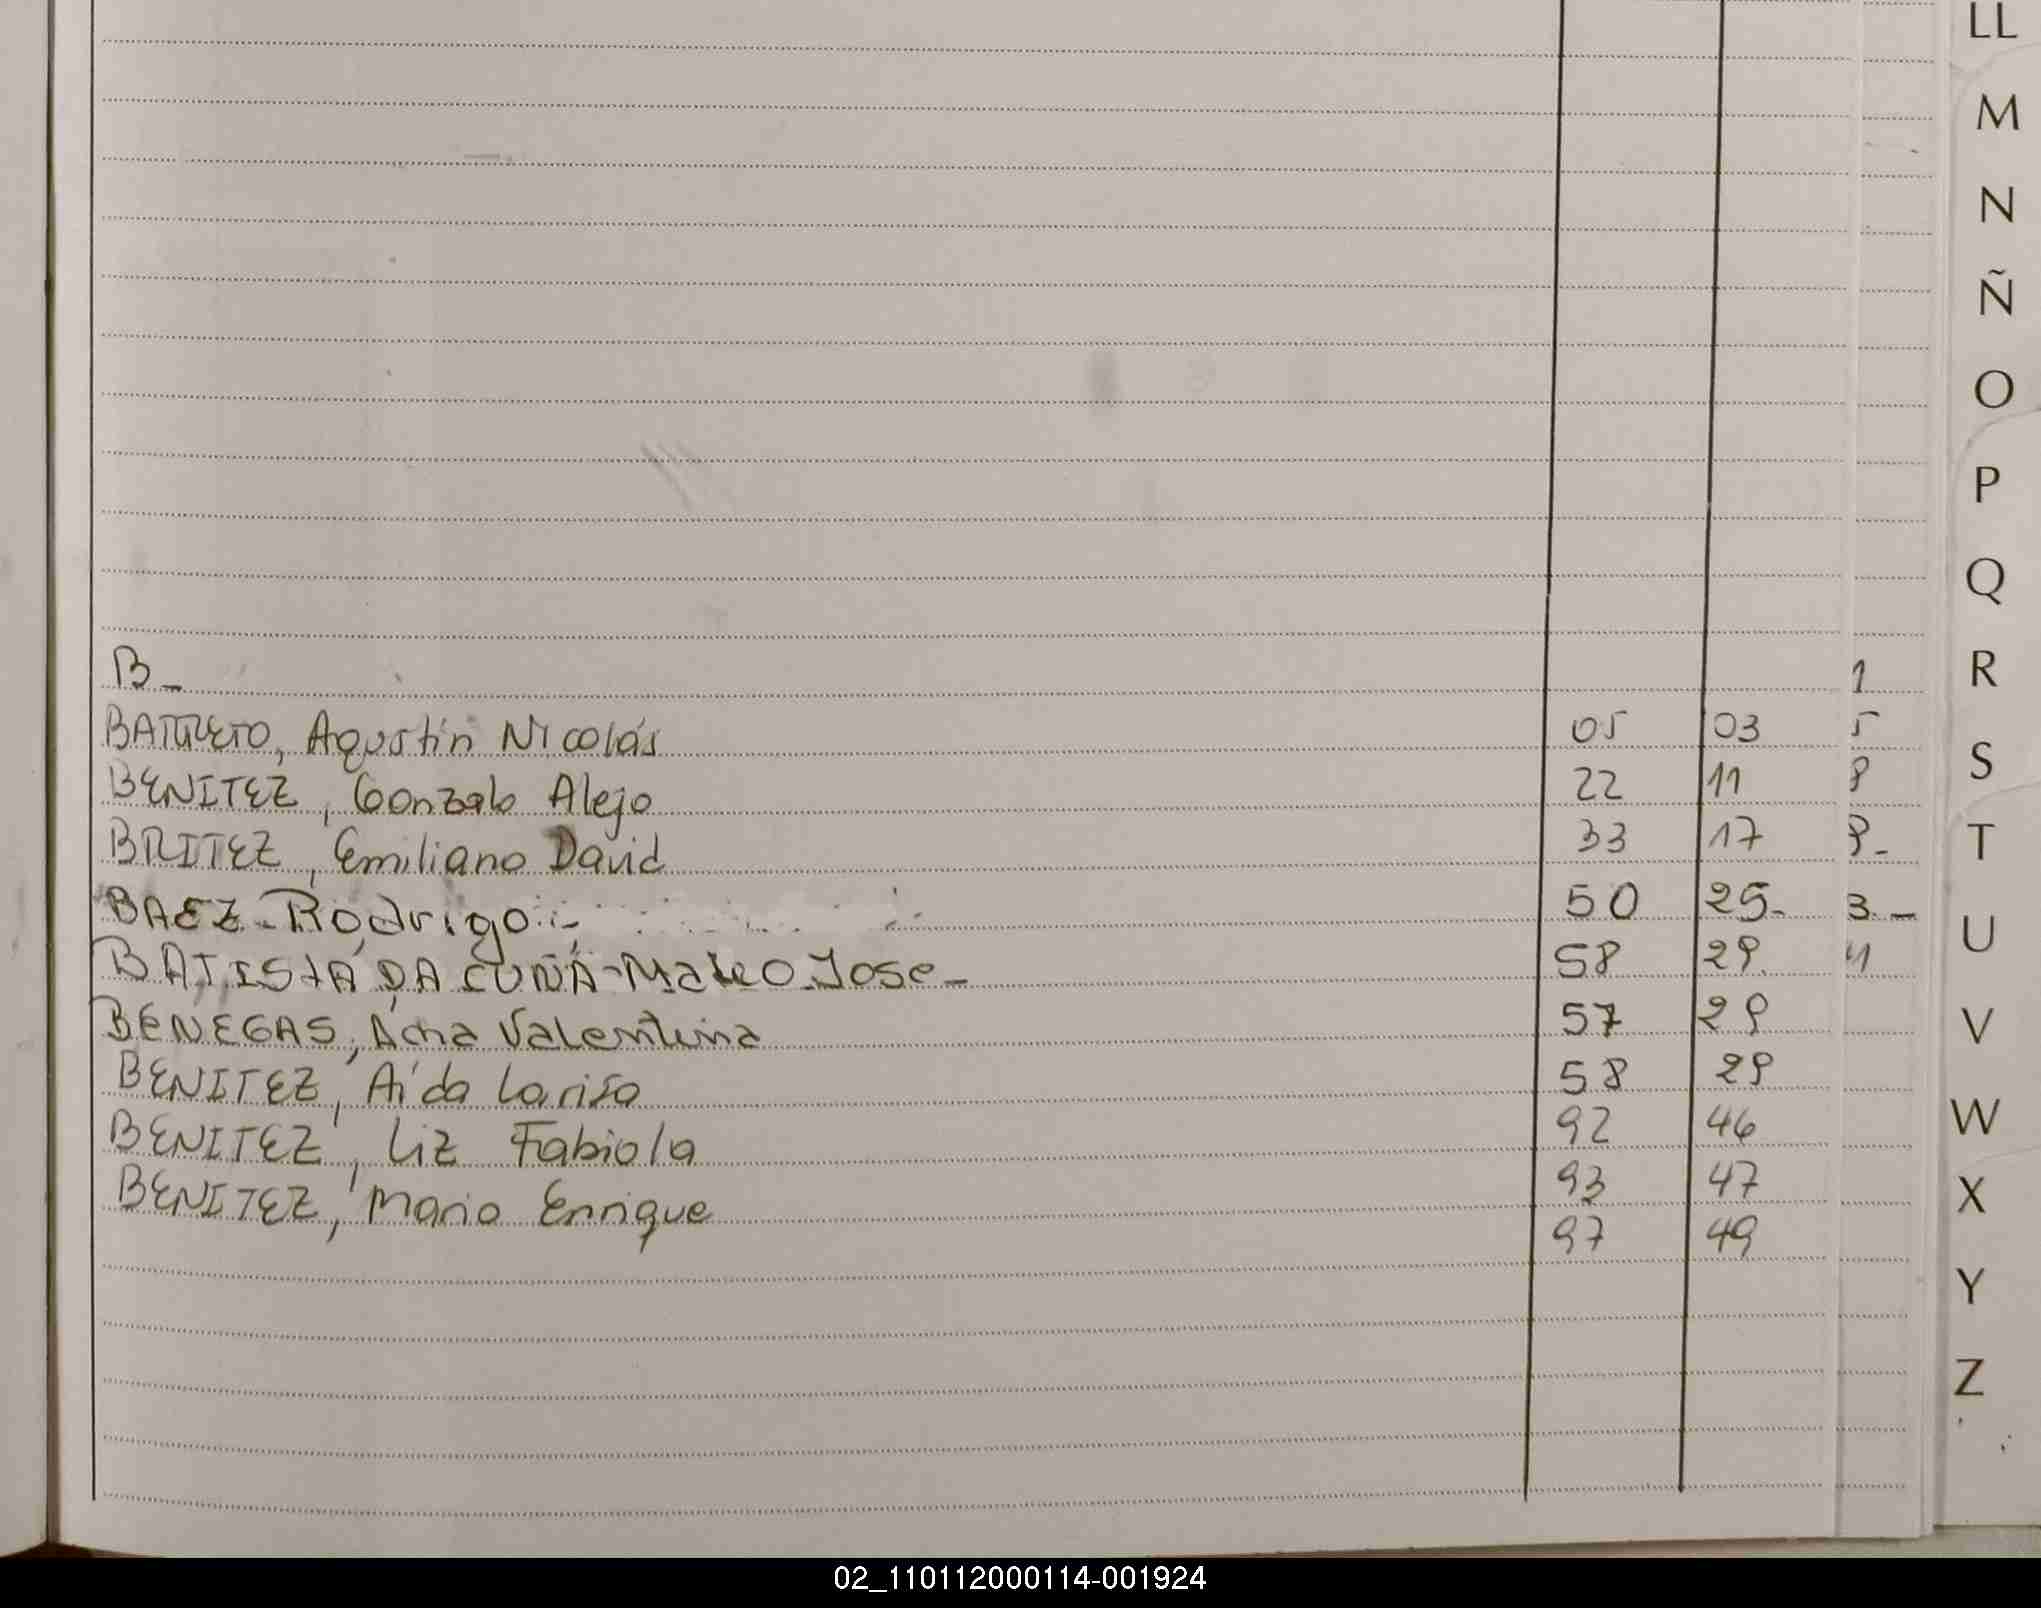 B_
BARRETO, Agustín Nicolás 05 03
BENITEZ, Gonzalo Alejo 22 11
BRITEZ, Emiliano David 33 17
BAEZ-Rodrigo.- 50 25-
BATISTA DA CUÑA-Mateo Jose- 58 29.
BENEGAS, Valentina 57 29
BENITEZ, Aída Larisa 58 29
BENITEZ, Liz Fabiola 92 46
BENITEZ, Mario Enrique 93 47
97 49
LL
M
N
Ñ
O
P
Q
R
S
T
U
V
W
X
Y
Z
02_110112000114-001924